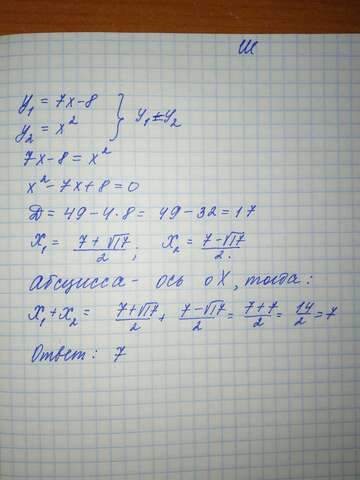 Ш
y₁ = 7x-8
y₂ = x² } y₁ = y₂
7x-8 = x²
x²-7x+8=0
D = 49-4·8 = 49-32 = 17
x₁ = (7+√17)/2; x₂ = (7-√17)/2.
Абсцисса - ось oX, тогда:
x₁+x₂ = (7+√17)/2 + (7-√17)/2 = (7+7)/2 = 14/2 = 7
Ответ: 7